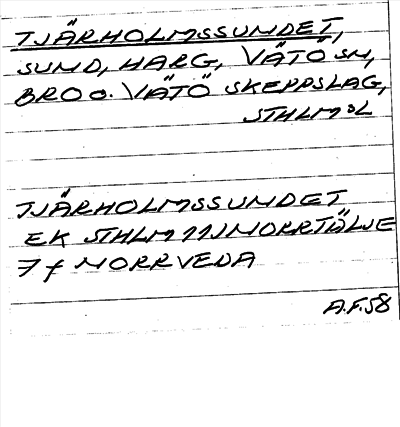 TJÄRHOLMSSUNDET,
SUND, HARG, VÄTÖ SN,
BRO O. VÄTÖ SKEPPSLAG,
STHLMS L
TJÄRHOLMSSUNDET
EK STHLM 11J NORRTÄLJE
7 f NORRVEDA
A.F.58